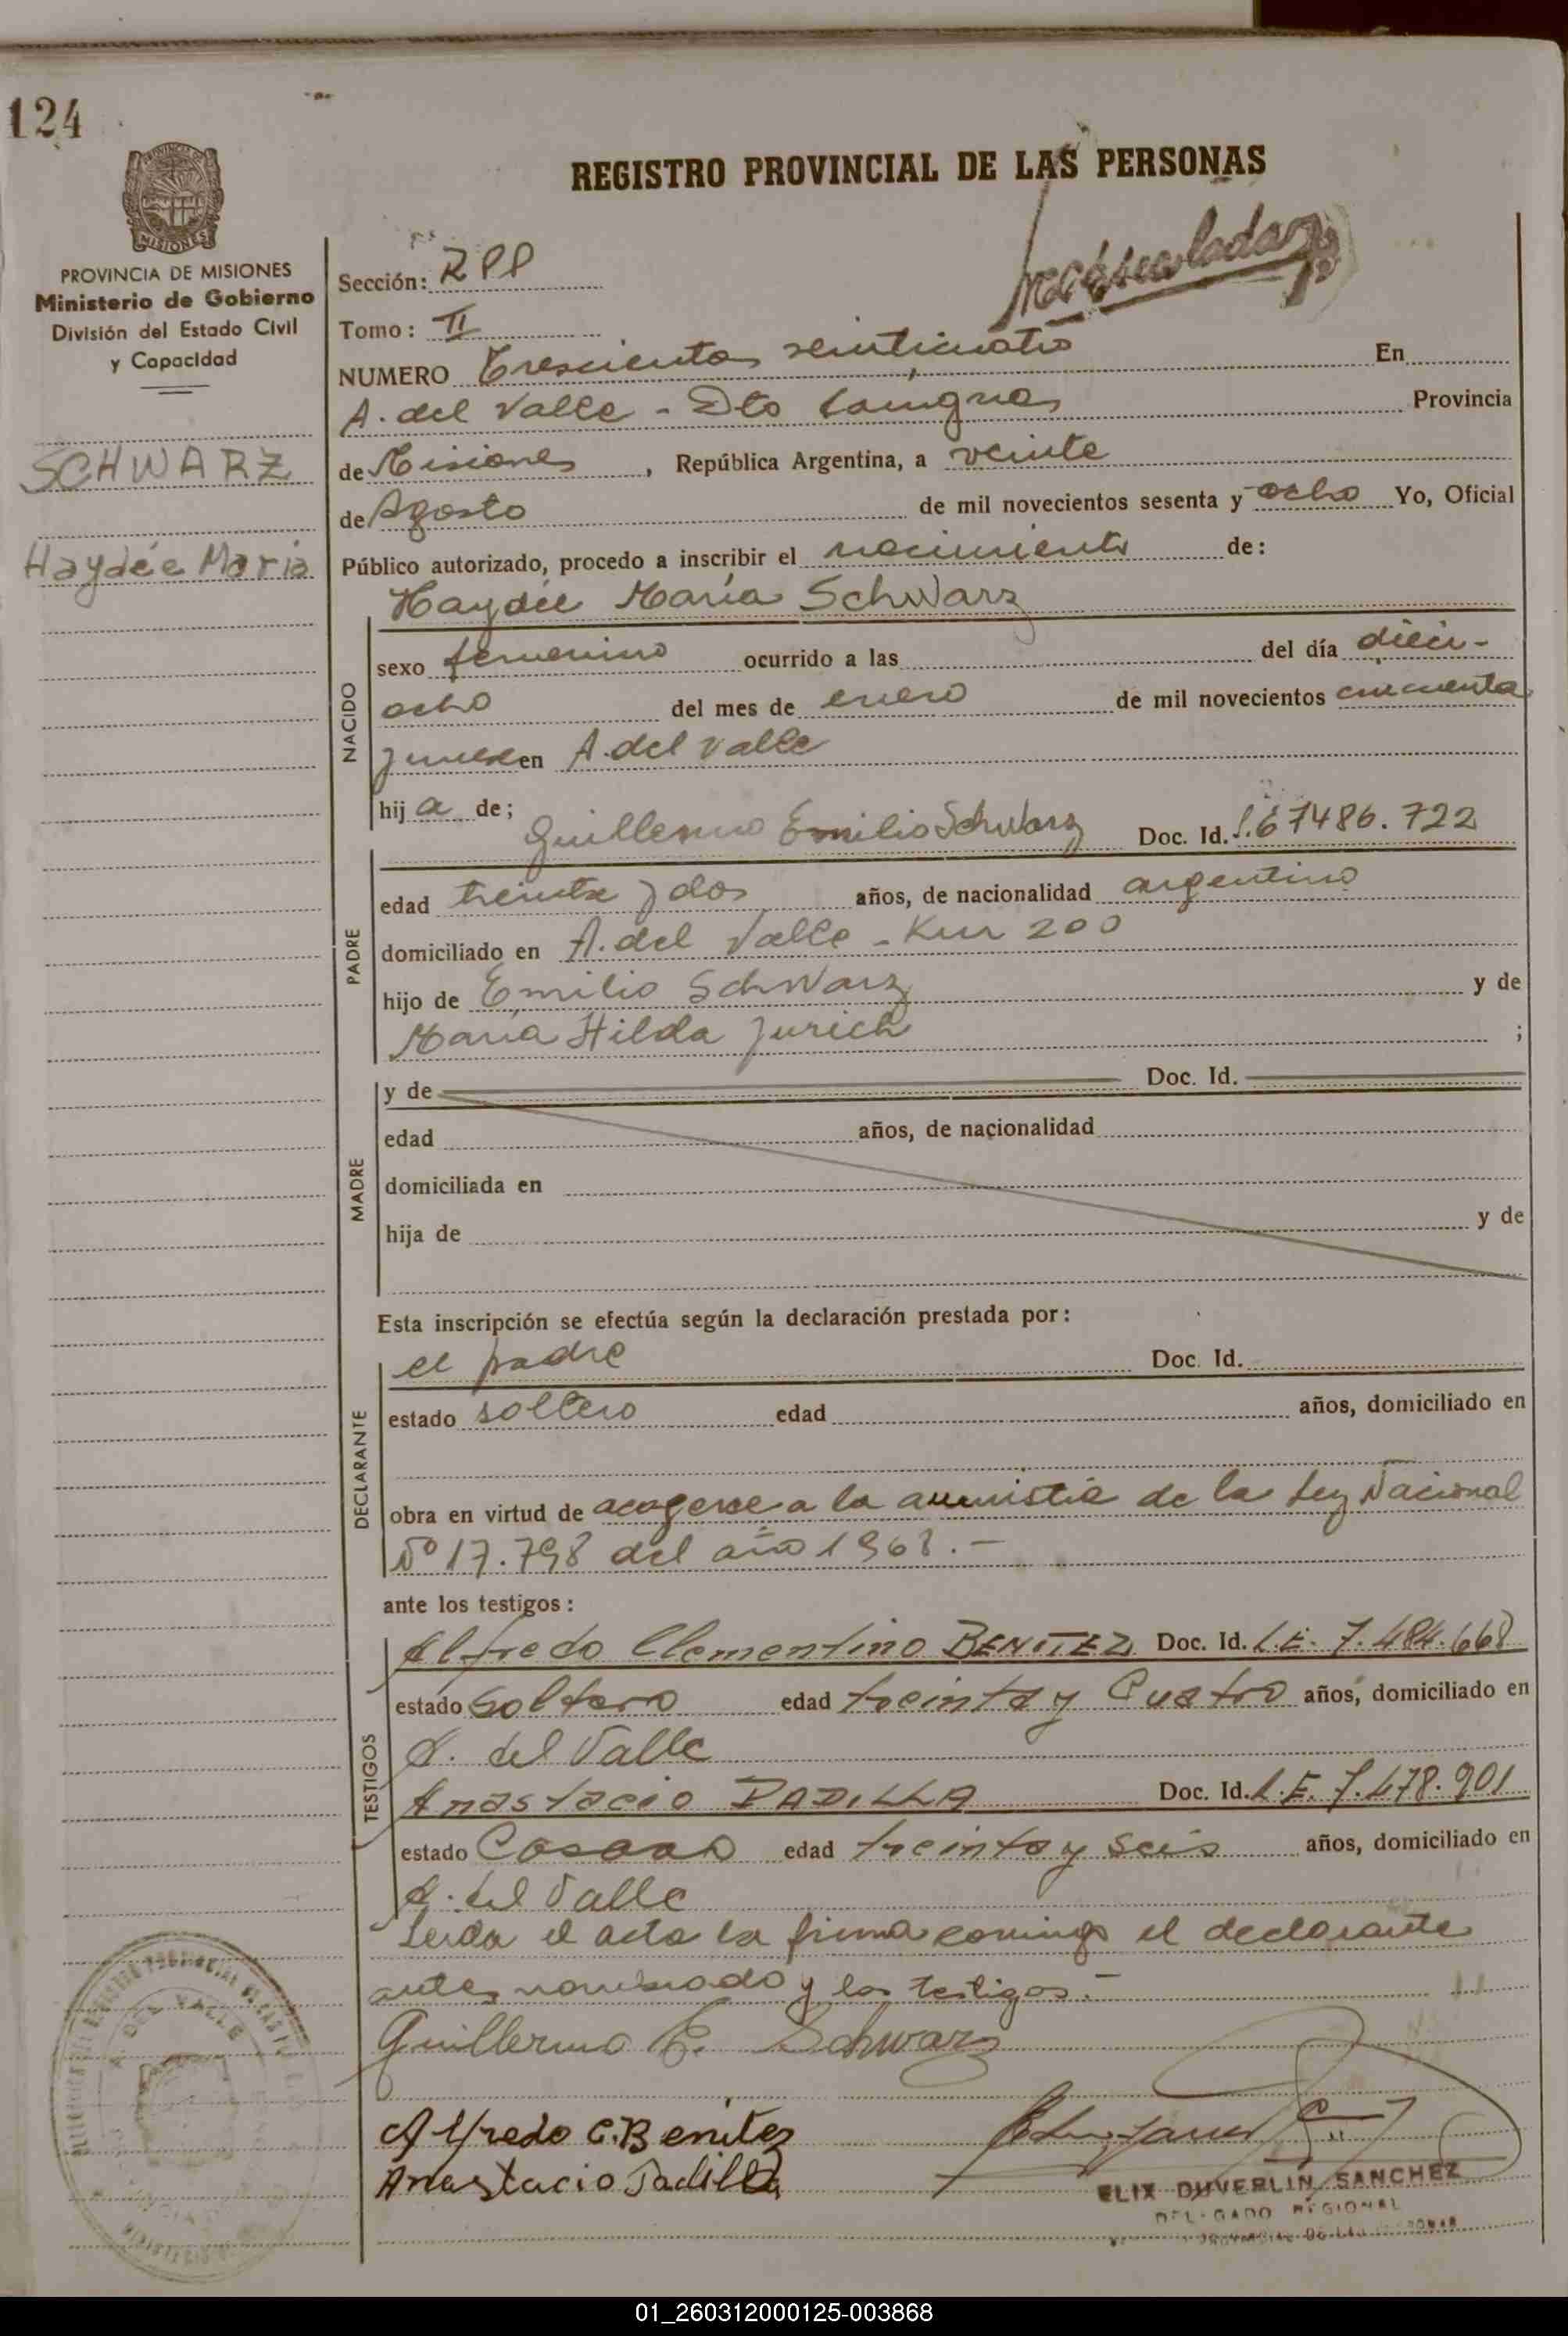 124
REGISTRO PROVINCIAL DE LAS PERSONAS
PROVINCIA DE MISIONES
Ministerio de Gobierno
División del Estado Civil
y Capacidad
Matriculada
Sección: RPP
Tomo: II
NUMERO Trescientos veinticuatro En
A. del Valle - Dto Cainguas Provincia
SCHWARZ
de Misiones, República Argentina, a veinte
de Agosto de mil novecientos sesenta y ocho Yo, Oficial
Haydée Maria
Público autorizado, procedo a inscribir el nacimiento de:
Haydée María Schwarz
NACIDO
sexo femenino ocurrido a las del día dieci-
ocho del mes de enero de mil novecientos cincuenta
y nueve en A. del Valle
hija de; Guillermo Emilio Schwarz Doc. Id. 7486.722
PADRE
edad treinta y dos años, de nacionalidad argentino
domiciliado en A. del Valle - Km 200
hijo de Emilio Schwarz y de
María Hilda Jurich ;
MADRE
y de Doc. Id.
edad años, de nacionalidad
domiciliada en
hija de y de
Esta inscripción se efectúa según la declaración prestada por:
DECLARANTE
el padre Doc. Id.
estado soltero edad años, domiciliado en
obra en virtud de acogerse a la amnistia de la Ley Nacional
Nº 17.798 del año 1968.-
ante los testigos:
TESTIGOS
Alfredo Clementino BENITEZ Doc. Id. L.E. 7.484.668
estado Soltero edad treinta y Cuatro años, domiciliado en
A. del Valle
Anastacio PADILLA Doc. Id. L.E. 7.478.901
estado Casado edad treinta y seis años, domiciliado en
A. del Valle
Leida el acta la firma conmigo el declarante
antes nombrado y los testigos.-
Guillermo E. Schwarz
Alfredo C. Benitez
Anastacio Padilla
ELIX DUVERLIN SANCHEZ
DELEGADO REGIONAL
A. DEL VALLE
01_260312000125-003868